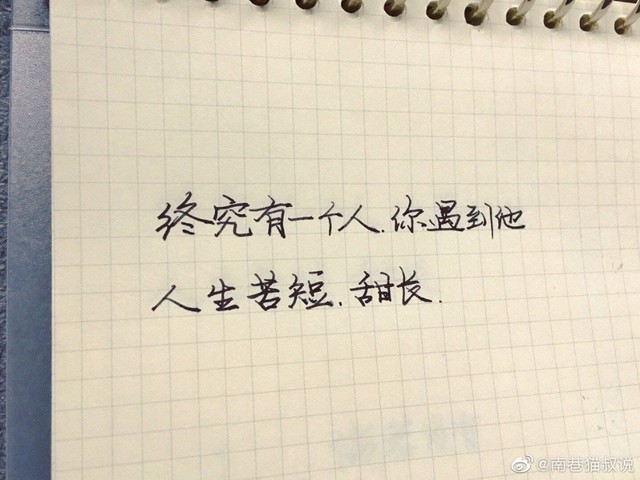 终究有一个人.你遇到他
人生苦短.甜长.
@南巷猫叔说